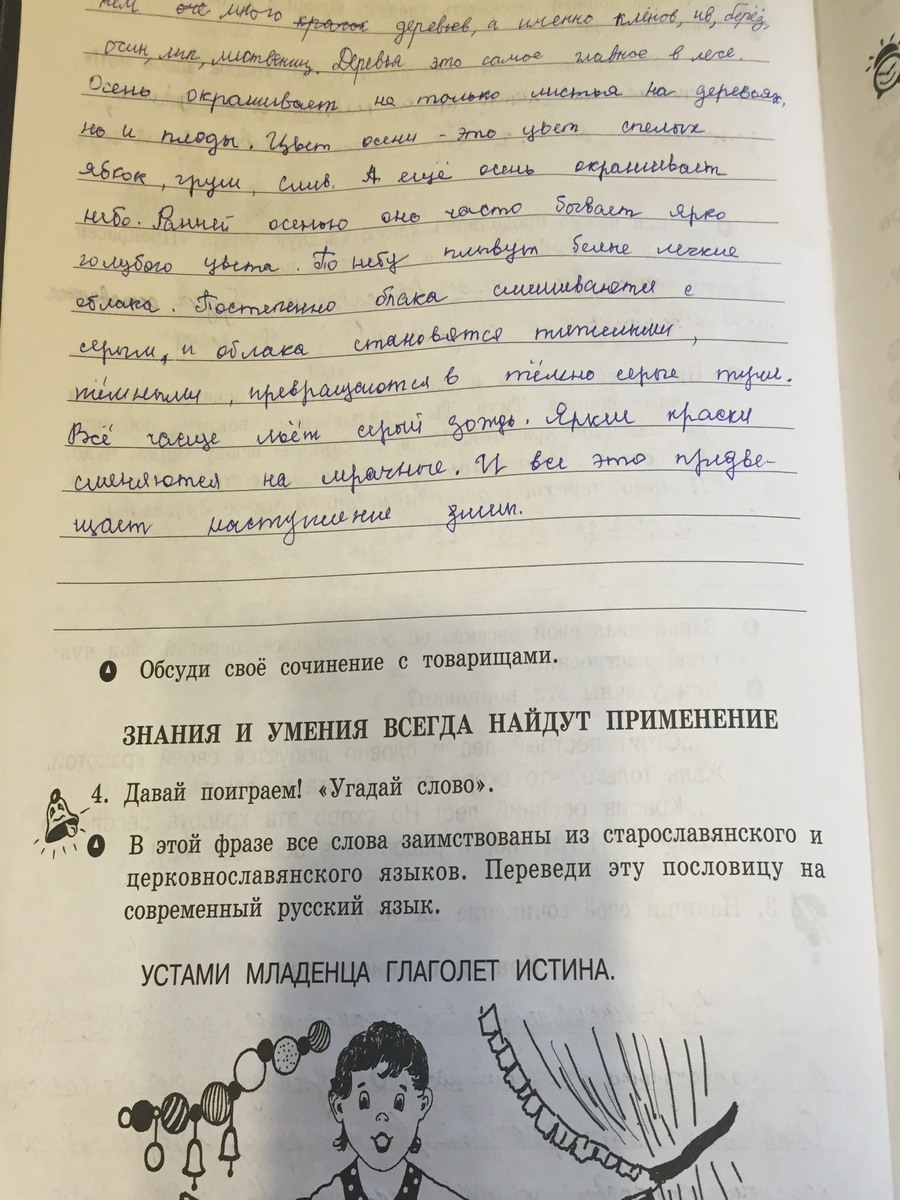 нём оче много красок деревьев, а именно клёнов, ив, берёз,
осин, лип, лиственниц. Деревья это самое главное в лесе.
Осень окрашивает на только листья на деревьях,
но и плоды. Цвет осени - это цвет спелых
яблок, груш, слив. А ещё осень окрашивает
небо. Ранней осенью оно часто бывает ярко
голубого цвета. По небу плывут белые легкие
облака. Постепенно облака смешиваются с
серым, и облака становятся тяжелыми,
тёмными, превращаются в тёмно серые тучи.
Всё чаще льёт серый дождь. Яркие краски
сменяются на мрачные. И все это предве-
щает наступление зимы.
Обсуди своё сочинение с товарищами.
ЗНАНИЯ И УМЕНИЯ ВСЕГДА НАЙДУТ ПРИМЕНЕНИЕ
4. Давай поиграем! «Угадай слово».
В этой фразе все слова заимствованы из старославянского и
церковнославянского языков. Переведи эту пословицу на
современный русский язык.
УСТАМИ МЛАДЕНЦА ГЛАГОЛЕТ ИСТИНА.